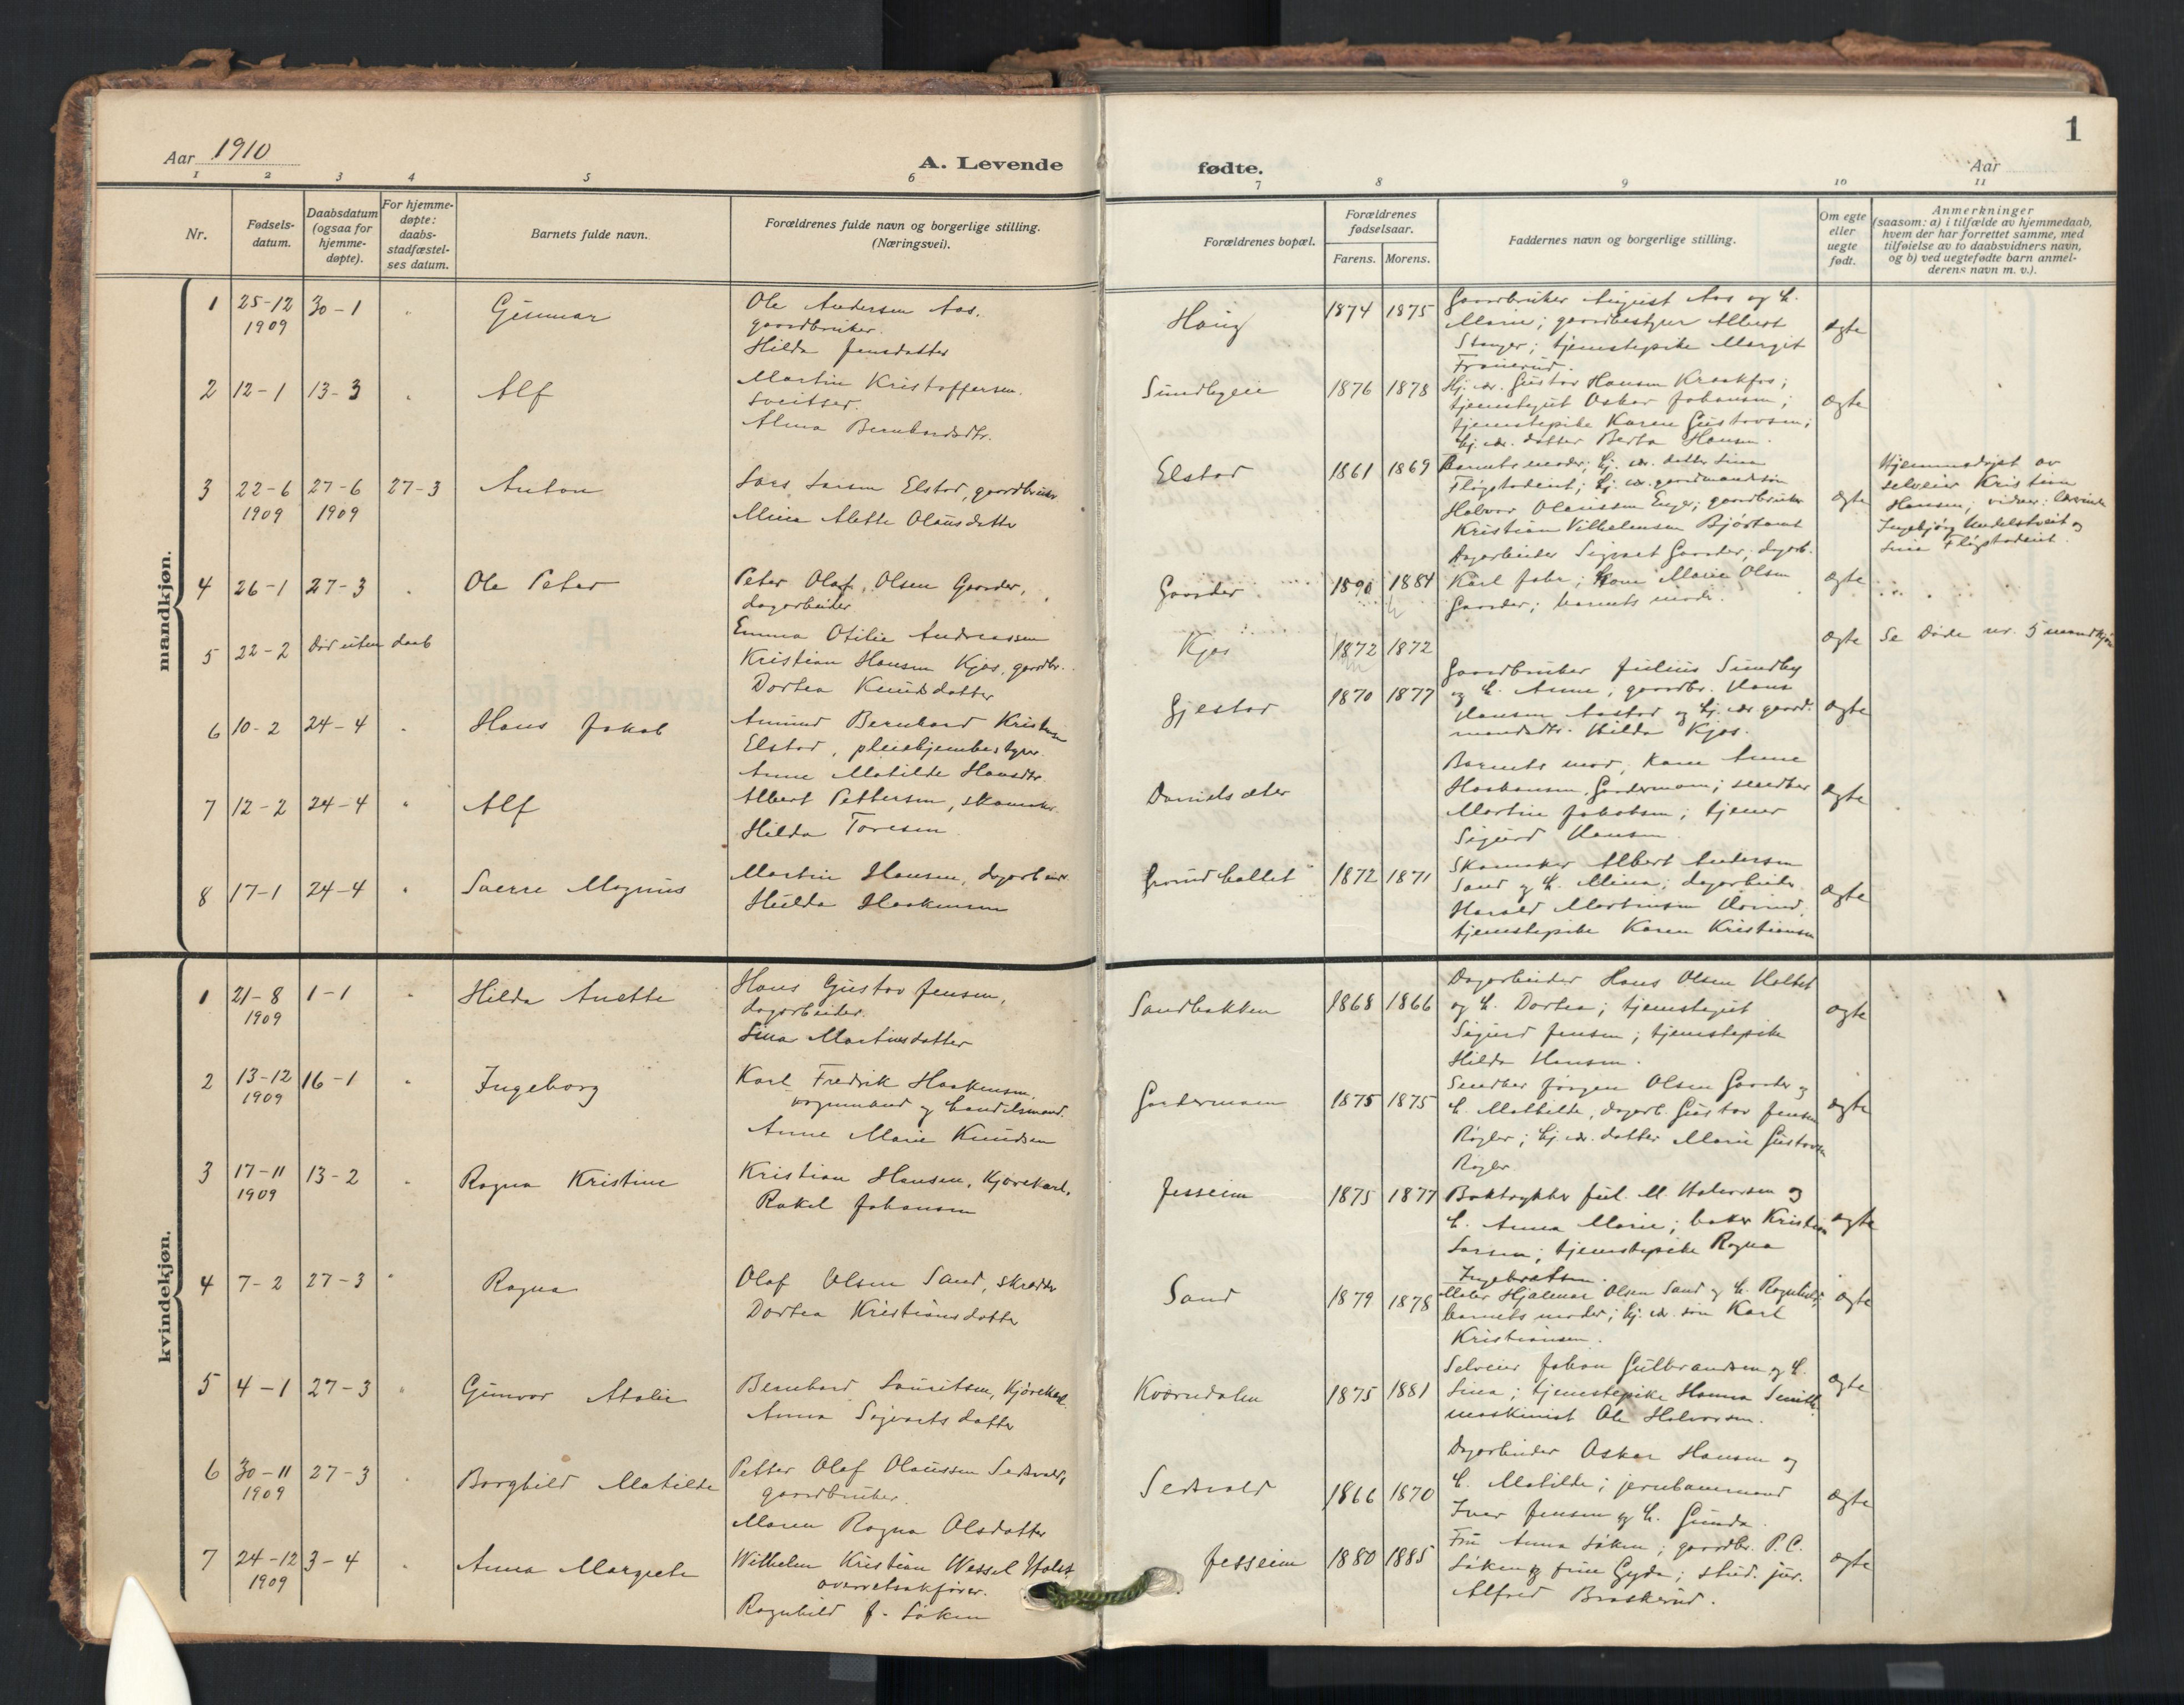 Aar 1910
A. Levende
1 2 3 4 5 6
Nr.
Fødsels-
datum.
Daabsdatum
(ogsaa for
hjemme-
døpte).
For hjemme-
døpte:
daabs-
stadfæstel-
ses datum.
Barnets fulde navn.
Forældrenes fulde navn og borgerlige stilling.
(Næringsvei).
mandkjøn.
1 25-12 30-1 Gunnar Ole Andersen Aas,
1909 gaardbruker.
Hilda Jensdatter
2 12-1 13-3 Alf Martin Kristoffersen
sveitser.
Alma Bernhardsdtr.
3 22-6 27-6 27-3 Anton Lars Larsen Elstad, gaardbruker
1909 1909 Mina Alette Olausdatter
4 26-1 27-3 Ole Peter Peter Olaf Olsen Gaarder,
dagarbeider
Emma Otilie Andreassen
5 22-2 Død uten daab Kristian Hansen Kjos, gaardbr.
Dortea Knudsdatter
6 10-2 24-4 Hans Jakob Amund Bernhard Kristiansen
Elstad, pleiehjembestyrer
Anne Matilde Hansdtr.
7 12-2 24-4 Alf Albert Pettersen, skomaker
Hilda Toresen
8 17-1 24-4 Sverre Magnus Martin Hansen, dagarbeider
Hulda Haakensen
kvindekjøn.
1 21-8 1-1 Hilda Anette Hans Gustav Jensen,
1909 dagarbeider.
Lina Martinsdatter
2 13-12 16-1 Ingeborg Karl Fredrik Haakensen,
1909 vognmand og handelsmand.
Anne Marie Knudsen
3 17-11 13-2 Ragna Kristine Kristian Hansen, Kjørekarl,
1909 Rakel Johansen
4 7-2 27-3 Ragna Olaf Olsen Sand, skrædder
Dortea Kristiansdatter
5 4-1 27-3 Gunvor Atalie Bernhard Lauritsen, Kjørekarl
Anna Sigvartsdatter
6 30-11 27-3 Borghild Matilde Petter Olaf Olaussen Sedsvold,
1909 gaardbruker.
Maren Ragna Olsdatter
7 24-12 3-4 Anna Margrete Wilhelm Kristian Wessel Holst
1909 overretsakfører.
Ragnhild f. Løken
1
fødte.
Aar
7 8 9 10 11
Forældrenes bopæl.
Forældrenes
fødselsaar.
Farens. Morens.
Faddernes navn og borgerlige stilling.
Om egte
eller
uegte
født.
Anmerkninger
(saasom: a) i tilfælde av hjemmedaab,
hvem der har forrettet samme, med
tilføielse av to daabsvidners navn,
og b) ved uegtefødte barn anmel-
derens navn m. v.).
Haug 1874 1875 Gaardbruker August Aas og h.
Marie; gaardbestyrer Albert ægte
Stanger; tjenestepike Margit
Sundbyeie 1876 1878 Hj. vær. Gustav Hansen Kraakfos;
tjenestegut Oskar Johansen; ægte
tjenestepike Karen Gustavsen;
hj. vær. datter Berta Hansen.
Elstad 1861 1869 Barnets moder; hj. vær. datter Lina
Fløgstadeiet; hj. vær. gaardmandssøn
Halvor Olaussen Enger; gaardbruker ægte
Kristian Vilhelmsen
Hjemmedøpt av
selveier Kristian
Hansen; vidner:
Ingebjørg og
Lina Fløgstadeiet.
Dagarbeider Sigvart Gaarder, dagarb.
Gaarder 1890 1884 Karl Johr; Kone Marie Olsen ægte
Gaarder; barnets moder.
Kjos 1872 1872 ægte Se Døde nr. 5 mandkjøn
Gjestad 1870 1877 Gaardbruker Julius Sundby
og h. Anne; gaardbr. Hans ægte
Hansen Aastad og hj. vær. gaard-
mandsdtr. Hilda Kjos.
Danielsæter Barnets mor; Kone Anne
Haakensen, Gardermoen; snedker ægte
Martin Jakobsen; tjener
Sigurd Hansen
Grindballet 1872 1871 Skomaker Albert Andersen
Sand og h. Mina; dagarbeider ægte
Harald Martinsen
tjenestepike Karen Kristiansen
Sandbakken 1868 1866 Dagarbeider Hans Olsen Holtet
og h. Dortea; tjenestegut ægte
Sigurd Jensen; tjenestepike
Hilda Hansen.
Gardermoen 1875 1875 Snedker Jørgen Olsen Gaarder og
h. Mathilde, dagarb. Gustav Jensen ægte
Rogler; hj. vær. datter Marie Gustavsen
Rogler
Jessheim 1875 1877 Boktrykker Jul. M. Halvorsen og
h. Anna Marie; baker Kristian ægte
Larsen; tjenestepike Ragna
Ingebretsen.
Sand 1879 1878 Maler Hjalmar Olsen Sand og h. Ragnhild; ægte
barnets moder; hj. vær. søn Karl
Kristiansen.
Kværndalen 1875 1881 Selveier Johan Gulbrandsen og h.
Lina; tjenestepike Hanna Smith ægte
maskinist Ole Halvorsen.
Sedsvold 1866 1870 Dagarbeider Oskar Hansen og
h. Matilde; jernbanemand ægte
Iver Jensen og h. Gunda.
Jessheim 1880 1885 Fru Anna Løken; gaardbr. P.C. ægte
Løken og frue Gyda; stud. jur.
Alfred Braskerud.